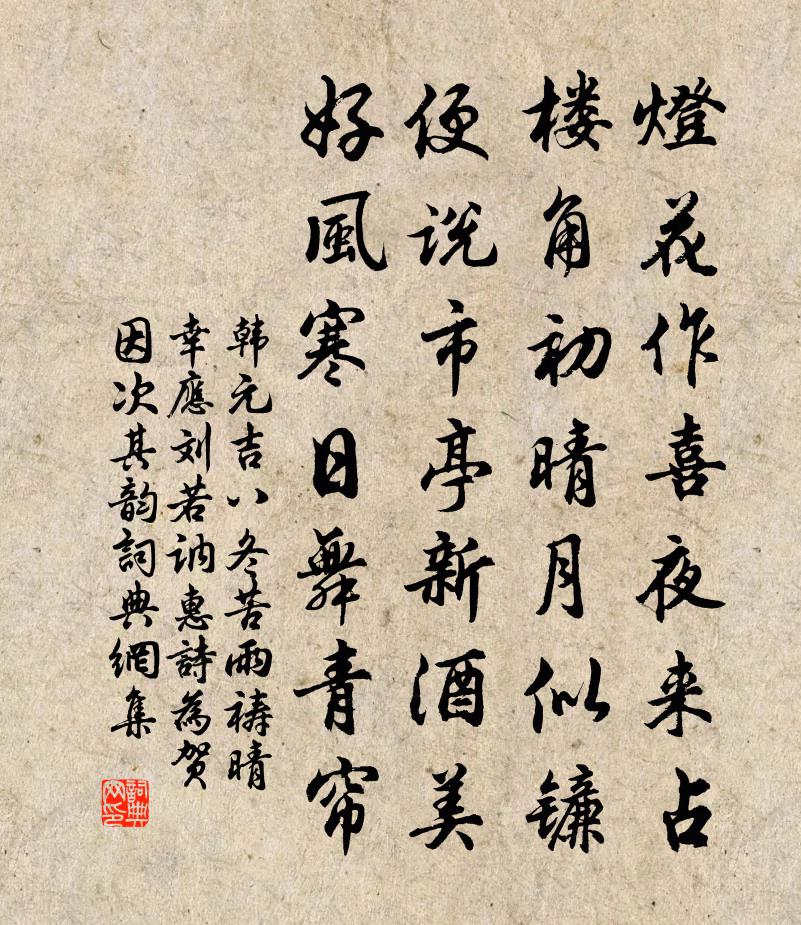 燈花作喜夜来占
楼角初晴月似镰
便説市亭新酒美
好風寒日舞青帘
韩元吉八冬苦雨祷晴
幸應刘若讷惠詩為贺
因次其韵詞典網集
詞典
网印